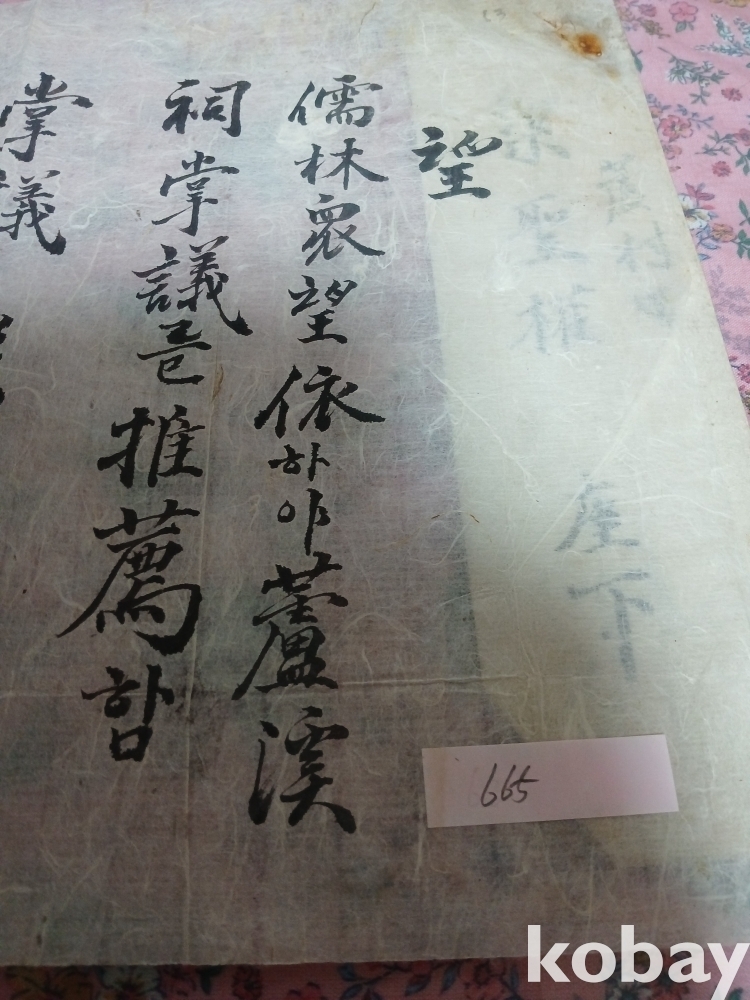 聖權 座下
望
儒林衆望依하야蘆溪
祠掌議를推薦함
掌議
665
kobay